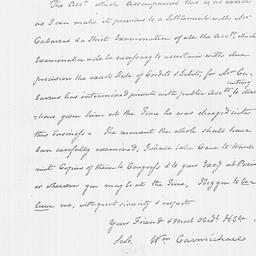 The Acct. which Accompanies this is as exact
as I can make it previous to a Settlement with Mr
Cabarrus & a Strict Examination of all the Accts, which
Examination will be necessary to ascertain with due
precision the exact State of Credits & Debits, for Mr Ca-
barrus has intermixed private with public Accts
given him at the Time he was charged with
this business — The moment the whole shall have
been carefully examined, I shall take Care to trans-
mit Copies of them to Congress & to your Excy at Paris
or wherever you may be at the Time, I beg you to be-
lieve me, with great sincerity & respect
Your Friend & Most Obdt. Hble
Sert. Wm Carmichael